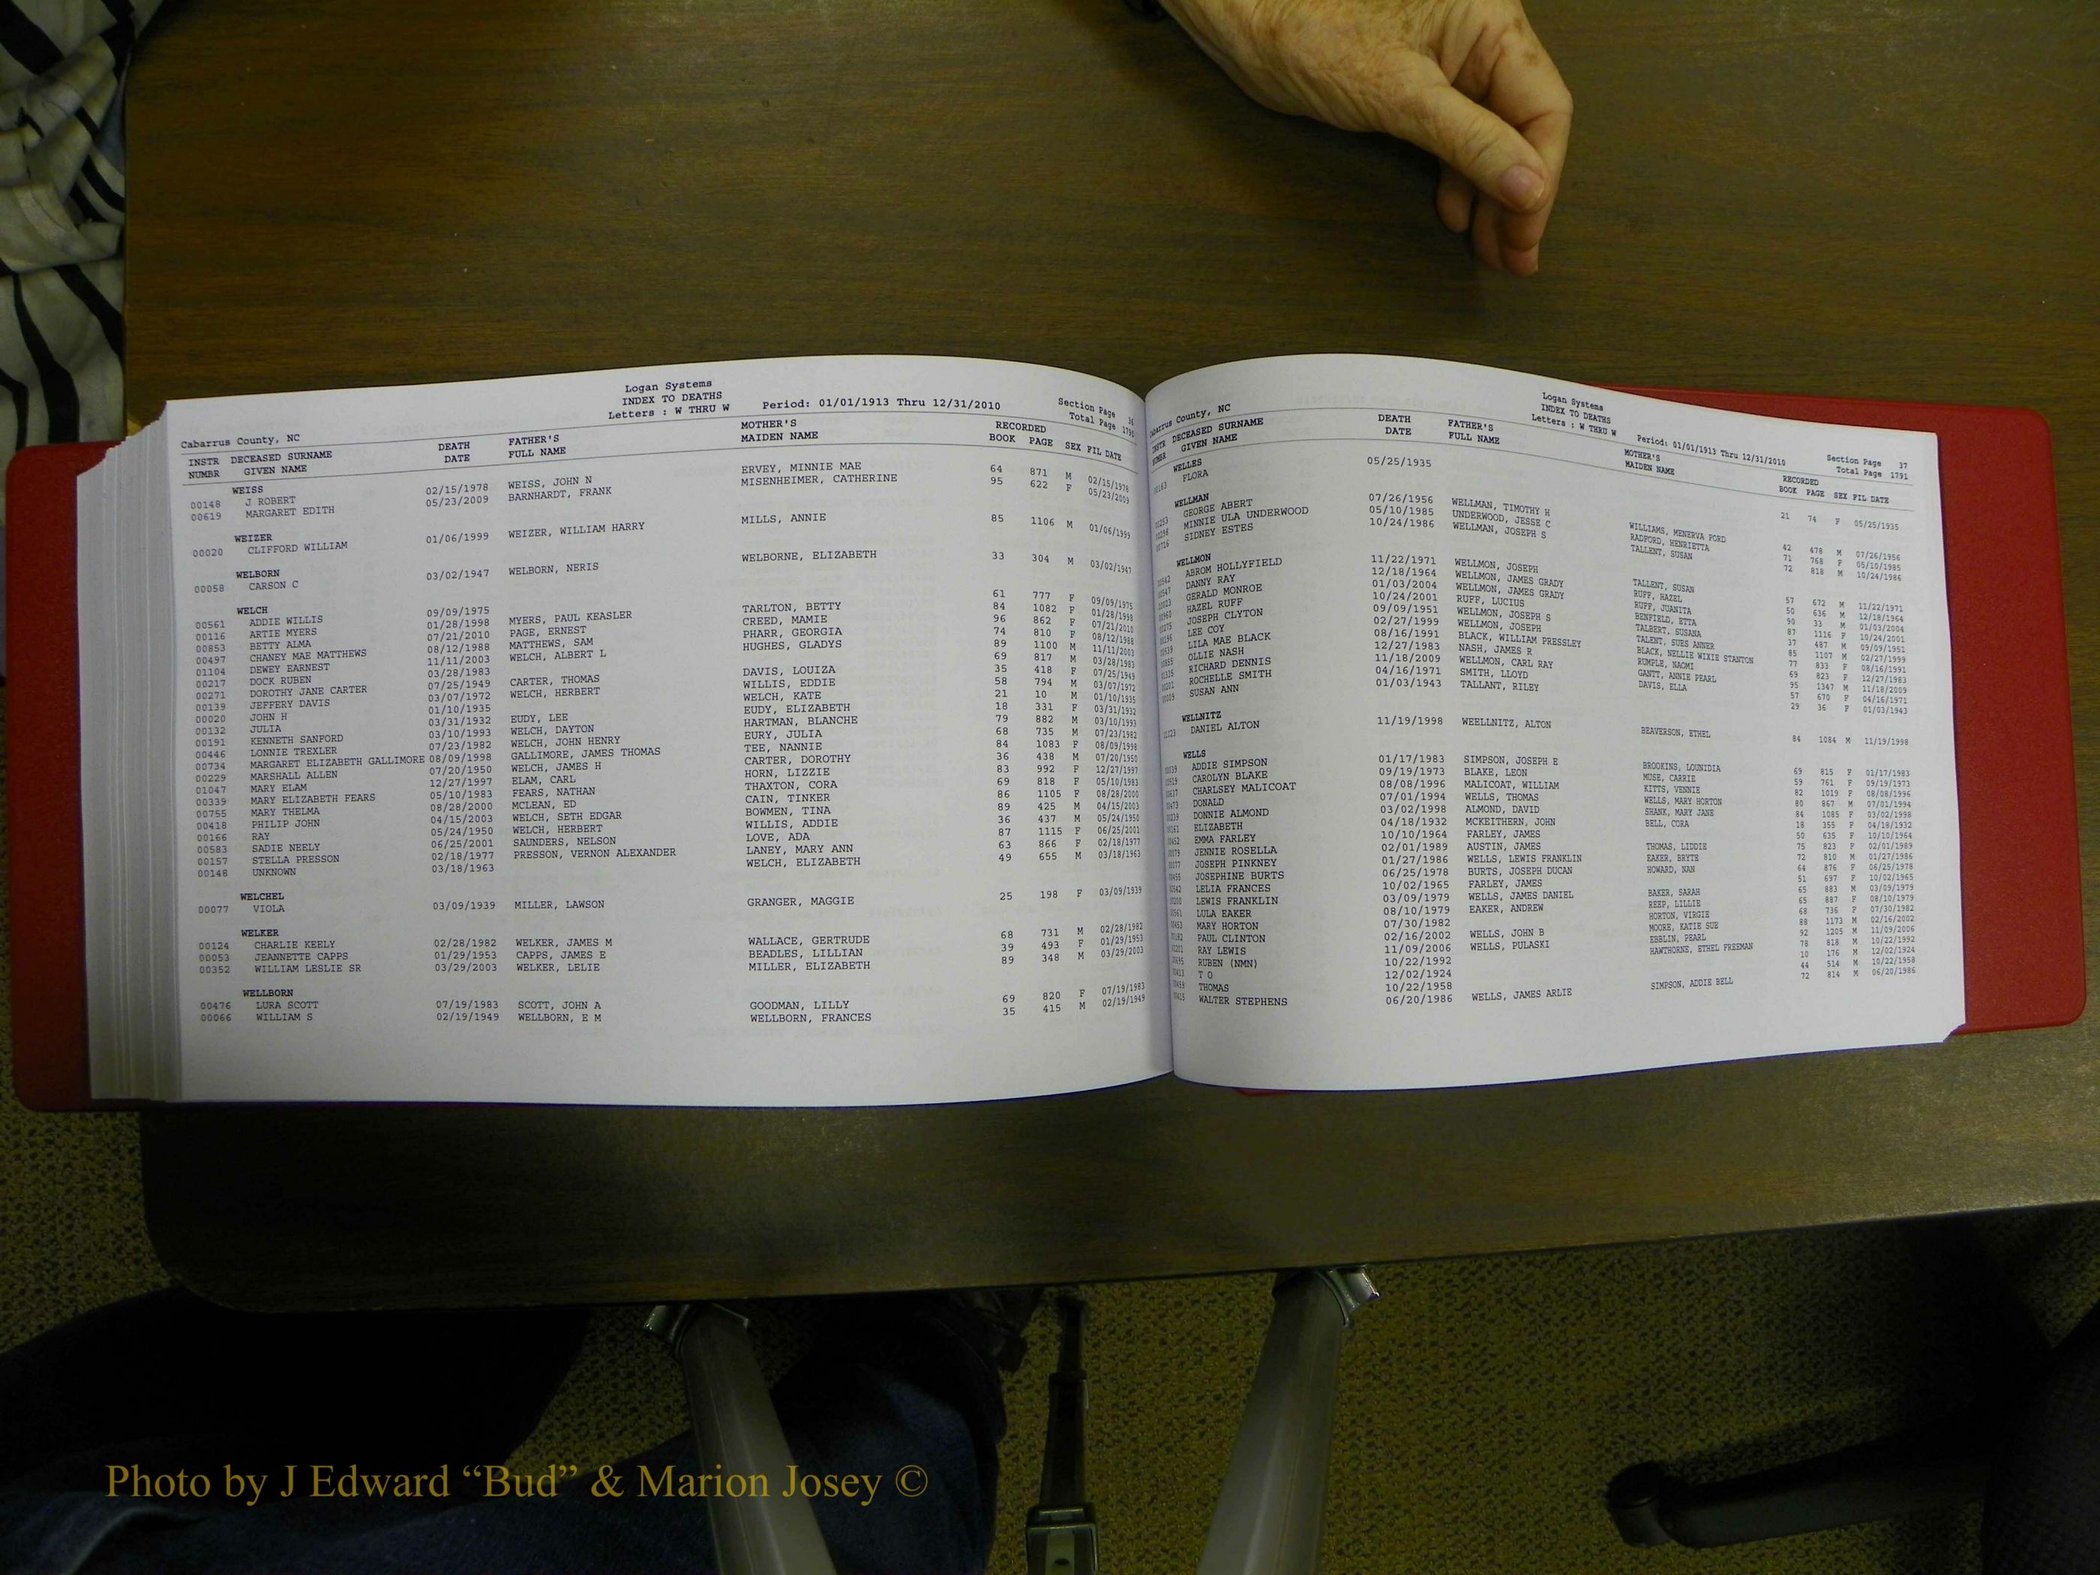 Logan Systems
INDEX TO DEATHS
Letters : W THRU W Period: 01/01/1913 Thru 12/31/2010
Section Page 36
Total Page 1790
Cabarrus County, NC
INSTR DECEASED SURNAME DEATH FATHER'S MOTHER'S RECORDED
NUMBR GIVEN NAME DATE FULL NAME MAIDEN NAME BOOK PAGE SEX FIL DATE
WEISS
00148 J ROBERT 02/15/1978 WEISS, JOHN N ERVEY, MINNIE MAE 64 871 M 02/15/1978
00619 MARGARET EDITH 05/23/2009 BARNHARDT, FRANK MISENHEIMER, CATHERINE 95 622 F 05/23/2009
WEIZER
00020 CLIFFORD WILLIAM 01/06/1999 WEIZER, WILLIAM HARRY MILLS, ANNIE 85 1106 M 01/06/1999
WELBORN
00058 CARSON C 03/02/1947 WELBORN, NERIS WELBORNE, ELIZABETH 33 304 M 03/02/1947
WELCH
00561 ADDIE WILLIS 09/09/1975 61 777 F 09/09/1975
00116 ARTIE MYERS 01/28/1998 MYERS, PAUL KEASLER TARLTON, BETTY 84 1082 F 01/28/1998
00853 BETTY ALMA 07/21/2010 PAGE, ERNEST CREED, MAMIE 96 862 F 07/21/2010
00497 CHANEY MAE MATTHEWS 08/12/1988 MATTHEWS, SAM PHARR, GEORGIA 74 810 F 08/12/1988
01104 DEWEY EARNEST 11/11/2003 WELCH, ALBERT L HUGHES, GLADYS 89 1100 M 11/11/2003
00217 DOCK RUBEN 03/28/1983 69 817 M 03/28/1983
00271 DOROTHY JANE CARTER 07/25/1949 CARTER, THOMAS DAVIS, LOUIZA 35 418 F 07/25/1949
00139 JEFFERY DAVIS 03/07/1972 WELCH, HERBERT WILLIS, EDDIE 58 794 M 03/07/1972
00020 JOHN H 01/10/1935 WELCH, KATE 21 10 M 01/10/1935
00132 JULIA 03/31/1932 EUDY, LEE EUDY, ELIZABETH 18 331 F 03/31/1932
00191 KENNETH SANFORD 03/10/1993 WELCH, DAYTON HARTMAN, BLANCHE 79 882 M 03/10/1993
00446 LONNIE TREXLER 07/23/1982 WELCH, JOHN HENRY EURY, JULIA 68 735 M 07/23/1982
00734 MARGARET ELIZABETH GALLIMORE 08/09/1998 GALLIMORE, JAMES THOMAS TEE, NANNIE 84 1083 F 08/09/1998
00229 MARSHALL ALLEN 07/20/1950 WELCH, JAMES H CARTER, DOROTHY 36 438 M 07/20/1950
01047 MARY ELAM 12/27/1997 ELAM, CARL HORN, LIZZIE 83 992 F 12/27/1997
00339 MARY ELIZABETH FEARS 05/10/1983 FEARS, NATHAN THAXTON, CORA 69 818 F 05/10/1983
00755 MARY THELMA 08/28/2000 MCLEAN, ED CAIN, TINKER 86 1105 F 08/28/2000
00418 PHILIP JOHN 04/15/2003 WELCH, SETH EDGAR BOWMEN, TINA 89 425 M 04/15/2003
00166 RAY 05/24/1950 WELCH, HERBERT WILLIS, ADDIE 36 437 M 05/24/1950
00583 SADIE NEELY 06/25/2001 SAUNDERS, NELSON LOVE, ADA 87 1115 F 06/25/2001
00157 STELLA PRESSON 02/18/1977 PRESSON, VERNON ALEXANDER LANEY, MARY ANN 63 866 F 02/18/1977
00148 UNKNOWN 03/18/1963 WELCH, ELIZABETH 49 655 M 03/18/1963
WELCHEL
00077 VIOLA 03/09/1939 MILLER, LAWSON GRANGER, MAGGIE 25 198 F 03/09/1939
WELKER
00124 CHARLIE KEELY 02/28/1982 WELKER, JAMES M WALLACE, GERTRUDE 68 731 M 02/28/1982
00053 JEANNETTE CAPPS 01/29/1953 CAPPS, JAMES E BEADLES, LILLIAN 39 493 F 01/29/1953
00352 WILLIAM LESLIE SR 03/29/2003 WELKER, LELIE MILLER, ELIZABETH 89 348 M 03/29/2003
WELLBORN
00476 LURA SCOTT 07/19/1983 SCOTT, JOHN A GOODMAN, LILLY 69 820 F 07/19/1983
00066 WILLIAM S 02/19/1949 WELLBORN, E M WELLBORN, FRANCES 35 415 M 02/19/1949
Logan Systems
INDEX TO DEATHS
Letters : W THRU W Period: 01/01/1913 Thru 12/31/2010
Section Page 37
Total Page 1791
Cabarrus County, NC
INSTR DECEASED SURNAME DEATH FATHER'S MOTHER'S RECORDED
NUMBR GIVEN NAME DATE FULL NAME MAIDEN NAME BOOK PAGE SEX FIL DATE
WELLES
00163 FLORA 05/25/1935 21 74 F 05/25/1935
WELLMAN
GEORGE ABERT 07/26/1956 WELLMAN, TIMOTHY H WILLIAMS, MENERVA FORD 42 478 M 07/26/1956
MINNIE ULA UNDERWOOD 05/10/1985 UNDERWOOD, JESSE C RADFORD, HENRIETTA 71 768 F 05/10/1985
SIDNEY ESTES 10/24/1986 WELLMAN, JOSEPH S TALLENT, SUSAN 72 818 M 10/24/1986
WELLMON
ABROM HOLLYFIELD 11/22/1971 WELLMON, JOSEPH TALLENT, SUSAN 57 672 M 11/22/1971
DANNY RAY 12/18/1964 WELLMON, JAMES GRADY RUFF, HAZEL 50 636 M 12/18/1964
GERALD MONROE 01/03/2004 WELLMON, JAMES GRADY RUFF, JUANITA 90 33 M 01/03/2004
HAZEL RUFF 10/24/2001 RUFF, LUCIUS BENFIELD, ETTA 87 1116 F 10/24/2001
JOSEPH CLYTON 09/09/1951 WELLMON, JOSEPH S TALBERT, SUSANA 37 487 M 09/09/1951
LEE COY 02/27/1999 WELLMON, JOSEPH TALENT, SUES ANNER 85 1107 M 02/27/1999
LILA MAE BLACK 08/16/1991 BLACK, WILLIAM PRESSLEY BLACK, NELLIE WIXIE STANTON 77 833 F 08/16/1991
OLLIE NASH 12/27/1983 NASH, JAMES R RUMPLE, NAOMI 69 823 F 12/27/1983
RICHARD DENNIS 11/18/2009 WELLMON, CARL RAY GANTT, ANNIE PEARL 95 1347 M 11/18/2009
ROCHELLE SMITH 04/16/1971 SMITH, LLOYD DAVIS, ELLA 57 670 F 04/16/1971
SUSAN ANN 01/03/1943 TALLANT, RILEY 29 36 F 01/03/1943
WELLNITZ
DANIEL ALTON 11/19/1998 WEELLNITZ, ALTON BEAVERSON, ETHEL 84 1084 M 11/19/1998
WELLS
ADDIE SIMPSON 01/17/1983 SIMPSON, JOSEPH E BROOKINS, LOUNIDIA 69 815 F 01/17/1983
CAROLYN BLAKE 09/19/1973 BLAKE, LEON MUSE, CARRIE 59 761 F 09/19/1973
CHARLSEY MALICOAT 08/08/1996 MALICOAT, WILLIAM KITTS, VENNIE 82 1019 F 08/08/1996
DONALD 07/01/1994 WELLS, THOMAS WELLS, MARY HORTON 80 867 M 07/01/1994
DONNIE ALMOND 03/02/1998 ALMOND, DAVID SHANK, MARY JANE 84 1085 F 03/02/1998
ELIZABETH 04/18/1932 MCKEITHERN, JOHN BELL, CORA 18 355 F 04/18/1932
EMMA FARLEY 10/10/1964 FARLEY, JAMES 50 635 F 10/10/1964
JENNIE ROSELLA 02/01/1989 AUSTIN, JAMES THOMAS, LIDDIE 75 823 F 02/01/1989
JOSEPH PINKNEY 01/27/1986 WELLS, LEWIS FRANKLIN EAKER, BRYTE 72 810 M 01/27/1986
JOSEPHINE BURTS 06/25/1978 BURTS, JOSEPH DUCAN HOWARD, NAN 64 876 F 06/25/1978
LELIA FRANCES 10/02/1965 FARLEY, JAMES 51 697 F 10/02/1965
LEWIS FRANKLIN 03/09/1979 WELLS, JAMES DANIEL BAKER, SARAH 65 883 M 03/09/1979
LULA EAKER 08/10/1979 EAKER, ANDREW REEP, LILLIE 65 887 F 08/10/1979
MARY HORTON 07/30/1982 HORTON, VIRGIE 68 736 F 07/30/1982
PAUL CLINTON 02/16/2002 WELLS, JOHN B MOORE, KATIE SUE 88 1173 M 02/16/2002
RAY LEWIS 11/09/2006 WELLS, PULASKI EBBLIN, PEARL 92 1205 M 11/09/2006
RUBEN (NMN) 10/22/1992 HAWTHORNE, ETHEL FREEMAN 78 818 M 10/22/1992
T O 12/02/1924 10 176 M 12/02/1924
THOMAS 10/22/1958 44 514 M 10/22/1958
WALTER STEPHENS 06/20/1986 WELLS, JAMES ARLIE SIMPSON, ADDIE BELL 72 814 M 06/20/1986
Photo by J Edward “Bud” & Marion Josey ©